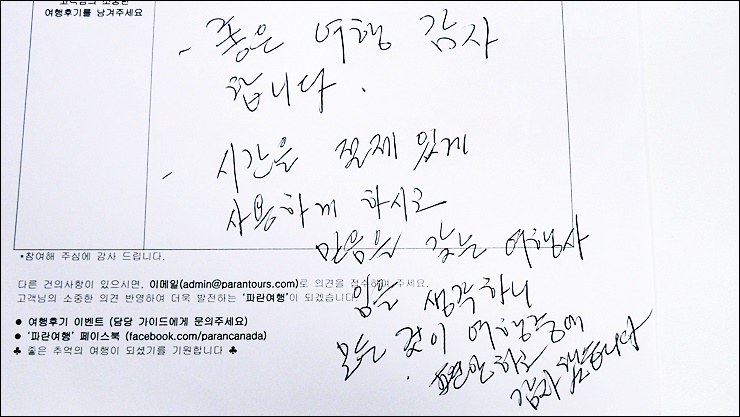 고객님의 소중한
여행후기를 남겨주세요
- 좋은 여행 감사
합니다.
- 시간은 절제 있게
사용하게 하시고
믿음을 갖는 여행사
임을 생각하니
모든 것이 여행중에
편안하고
감사했습니다
*참여해 주심에 감사 드립니다.
다른 건의사항이 있으시면, 이메일(admin@parantours.com)로 의견을 접수하여 주세요.
고객님의 소중한 의견 반영하여 더욱 발전하는 '파란여행'이 되겠습니다.
● 여행후기 이벤트 (담당 가이드에게 문의주세요)
● '파란여행' 페이스북 (facebook.com/parancanada)
♣ 좋은 추억의 여행이 되셨기를 기원합니다 ♣